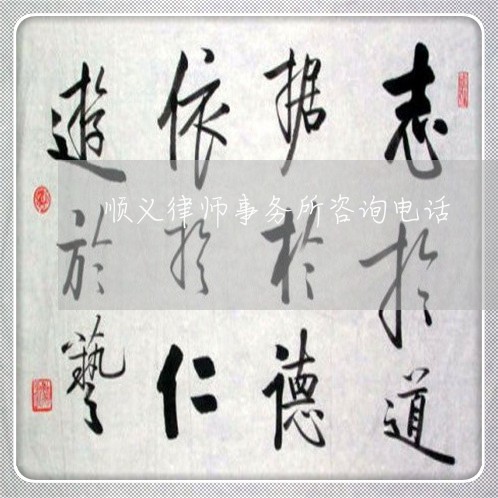 志於道
据於德
依於仁
遊於藝
顺义律师事务所咨询电话